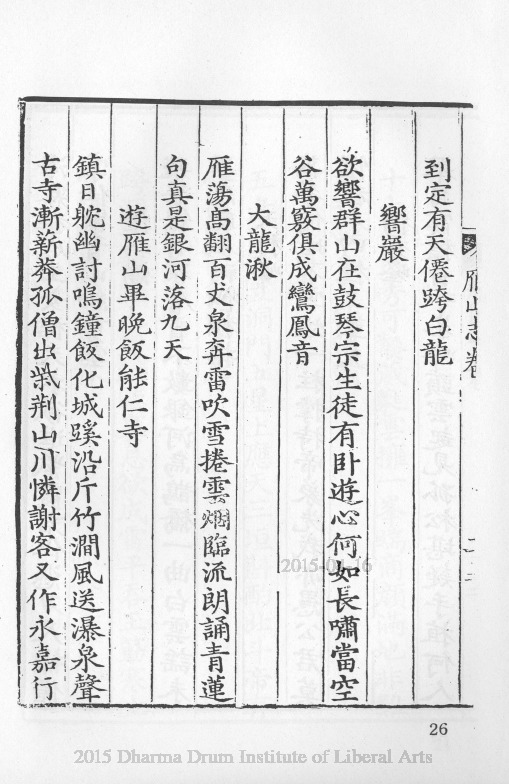 雁山志卷
二十三
到定有天僊跨白龍
響巖
欲響群山在鼓琴宗生徒有卧遊心何如長嘯當空
谷萬竅俱成鸞鳳音
大龍湫
雁蕩高翻百丈泉奔雷吹雪捲雲烟臨流朗誦青蓮
句真是銀河落九天
遊雁山畢晚飯能仁寺
鎮日躭幽討鳴鐘飯化城蹊沿斤竹澗風送瀑泉聲
古寺漸薪莽孤僧出紫荆山川憐謝客又作永嘉行
2015-04-16
26
2015 Dharma Drum Institute of Liberal Arts